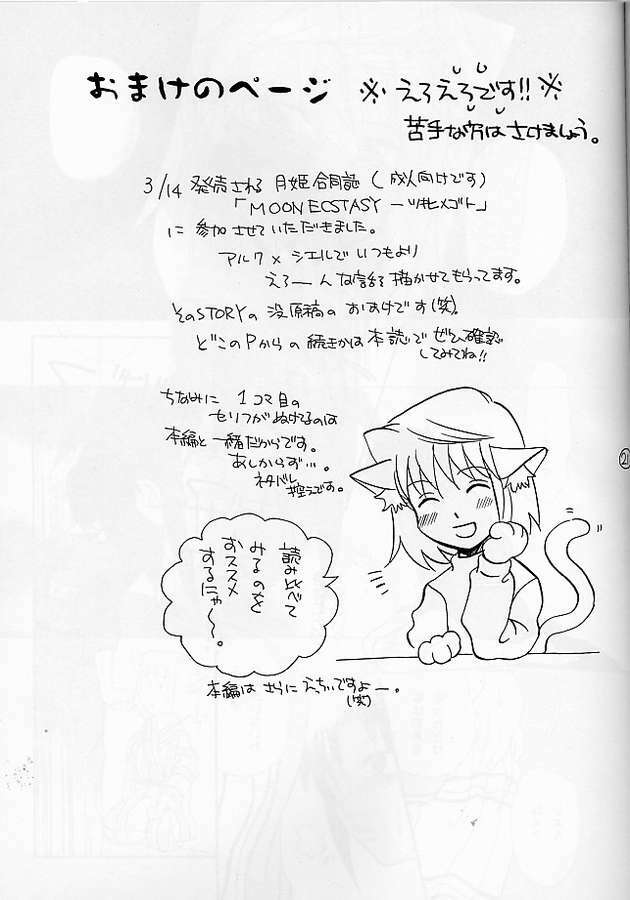 おまけのページ ※えろえろです!!※
苦手な方はさけましょう。
3/14 発売される 月姫合同誌 (成人向けです)
「MOON ECSTASY ーツキヒメゴトー」
に 参加させていただきました。
アルク×シエルで いつもより
えろーーんな話を描かせてもらってます。
そのSTORYの 没原稿の おまけです(笑)
どこのPからの続きかは本誌で ぜひ確認
してみてね!!
ちなみに 1コマ目の
セリフがぬけてるのは
本編と一緒だからです。
あしからず…。
ネタバレ
控えです。
読み比べて
みるのを
おススメ
するにゃ〜。
本編は さらに えっちぃですよー。
(笑)